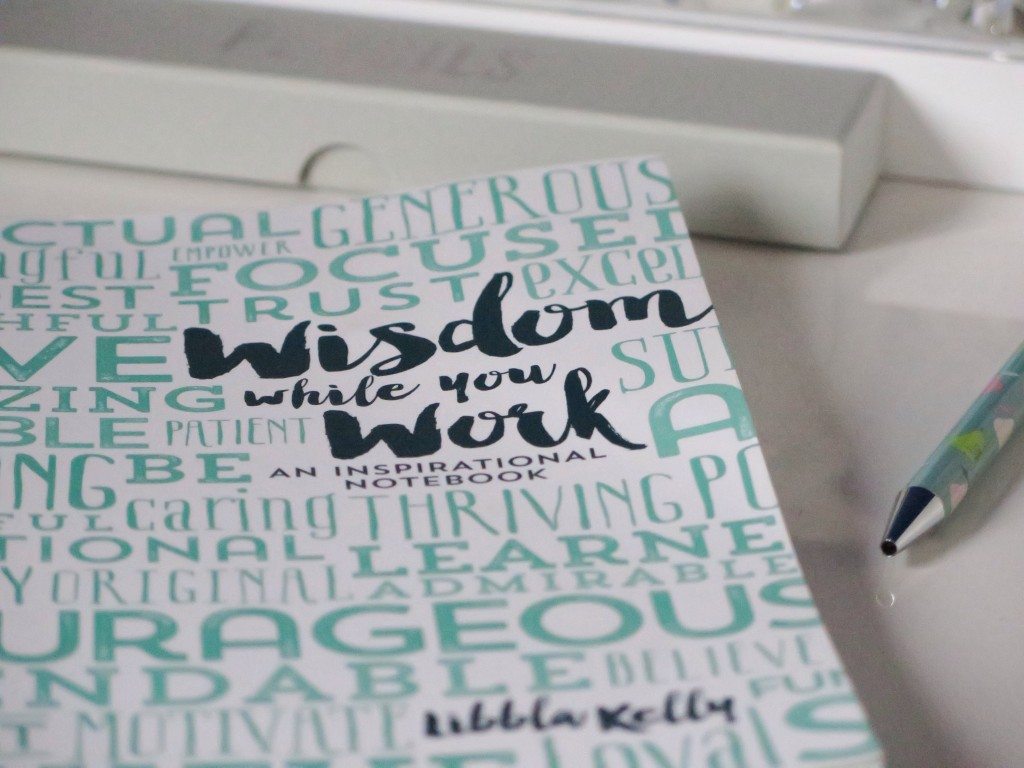 CTUAL EMPOWER GENEROUS
FOCUSED
EST TRUST EXCEL
HFUL
VE Wisdom
while you SU
ZING Work A
BLE PATIENT
NG BE AN INSPIRATIONAL
NOTEBOOK
FUL caring THRIVING PO
TIONAL LEARNE
Y ORIGINAL ADMIRABLE
URAGEOUS
NDABLE BELIEVE
FUN
MOTIVATE Libbla Kelly
Loyal S